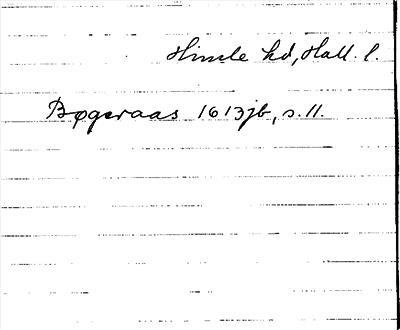 Himle hd, Hall. l.
Bøgeraas 1613jb, s. 11.